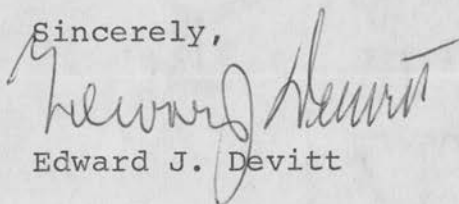 Sincerely,
Edward J Devitt
Edward J. Devitt